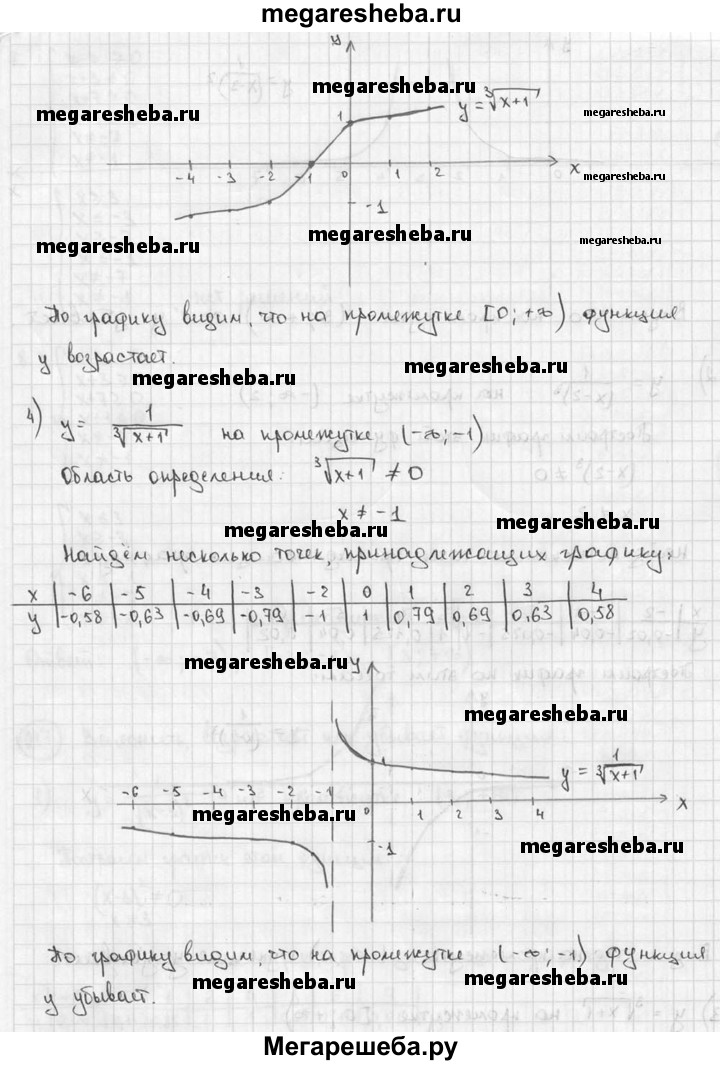 megaresheba.ru
y
megaresheba.ru
y = ∛(x+1)
megaresheba.ru
megaresheba.ru
1
-4 -3 -2 -1 0 1 2 x
megaresheba.ru
-1
megaresheba.ru
megaresheba.ru
megaresheba.ru
По графику видим, что на промежутке [0; +∞) функция
у возрастает.
megaresheba.ru
megaresheba.ru
4) y = 1/∛(x+1) на промежутке (-∞; -1)
Область определения: ∛(x+1) ≠ 0
x ≠ -1
megaresheba.ru
megaresheba.ru
Найдём несколько точек, принадлежащих графику:
x | -6 | -5 | -4 | -3 | -2 | 0 | 1 | 2 | 3 | 4
y | -0,58 | -0,63 | -0,69 | -0,79 | -1 | 1 | 0,79 | 0,69 | 0,63 | 0,58
megaresheba.ru
y
megaresheba.ru
y = 1/∛(x+1)
-6 -5 -4 -3 -2 -1 0 1 2 3 4 x
megaresheba.ru
-1
megaresheba.ru
По графику видим, что на промежутке (-∞; -1) функция
megaresheba.ru
megaresheba.ru
у убывает.
Мегарешеба.ру